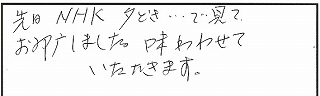 先日 NHK 夕どき…で見て
お邪广しました。味わわせて
いただきます。